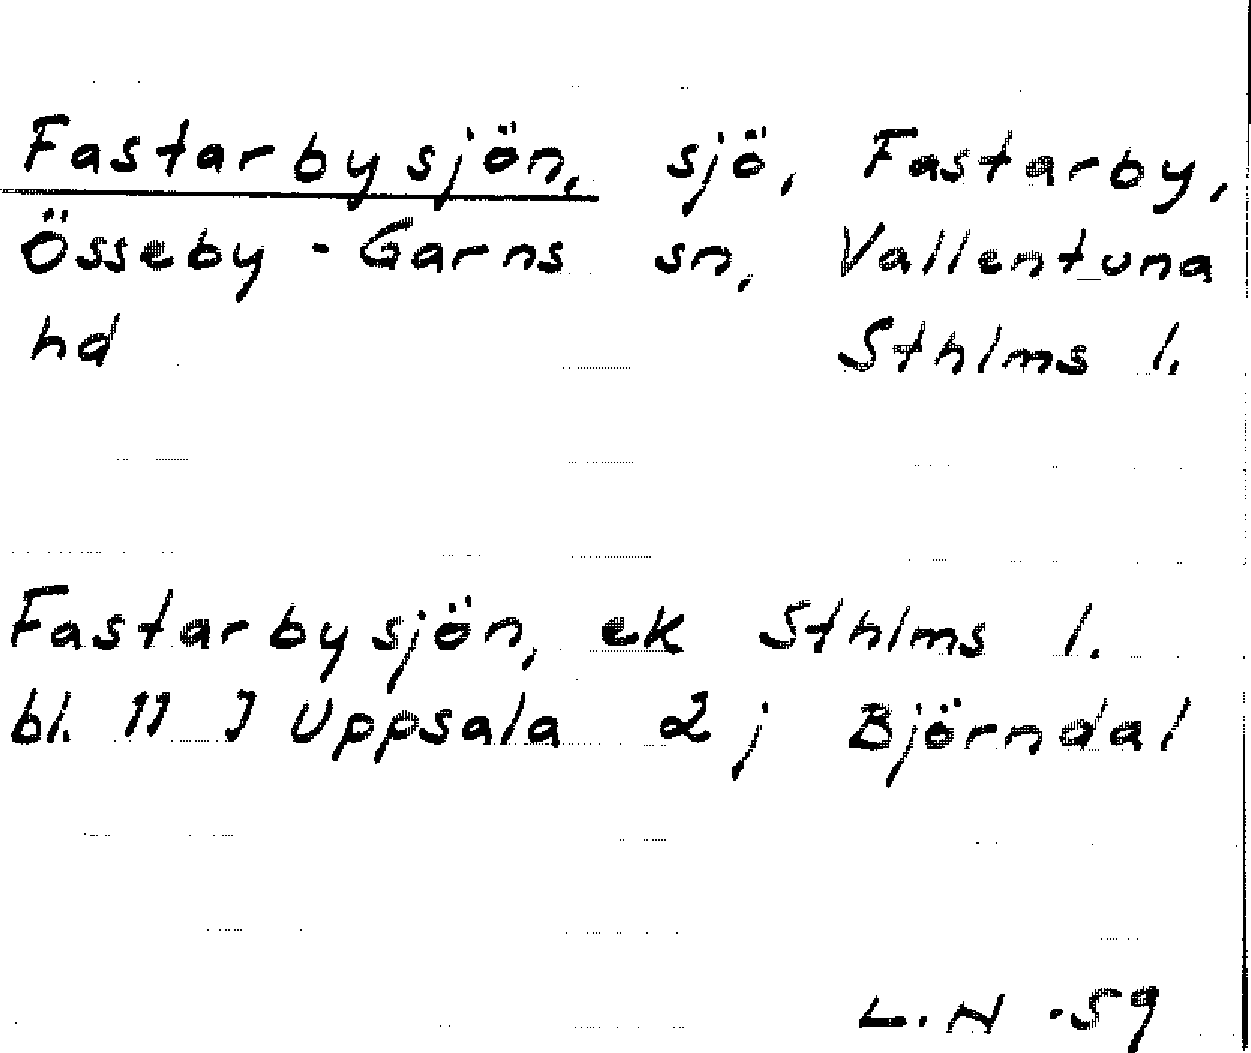 Fastarbysjön, sjö, Fastarby,
Össeby-Garns sn, Vallentuna
hd Sthlms l.
Fastarbysjön, ek Sthlms l.
bl. 11 J Uppsala 2 j Björndal
L.N -59